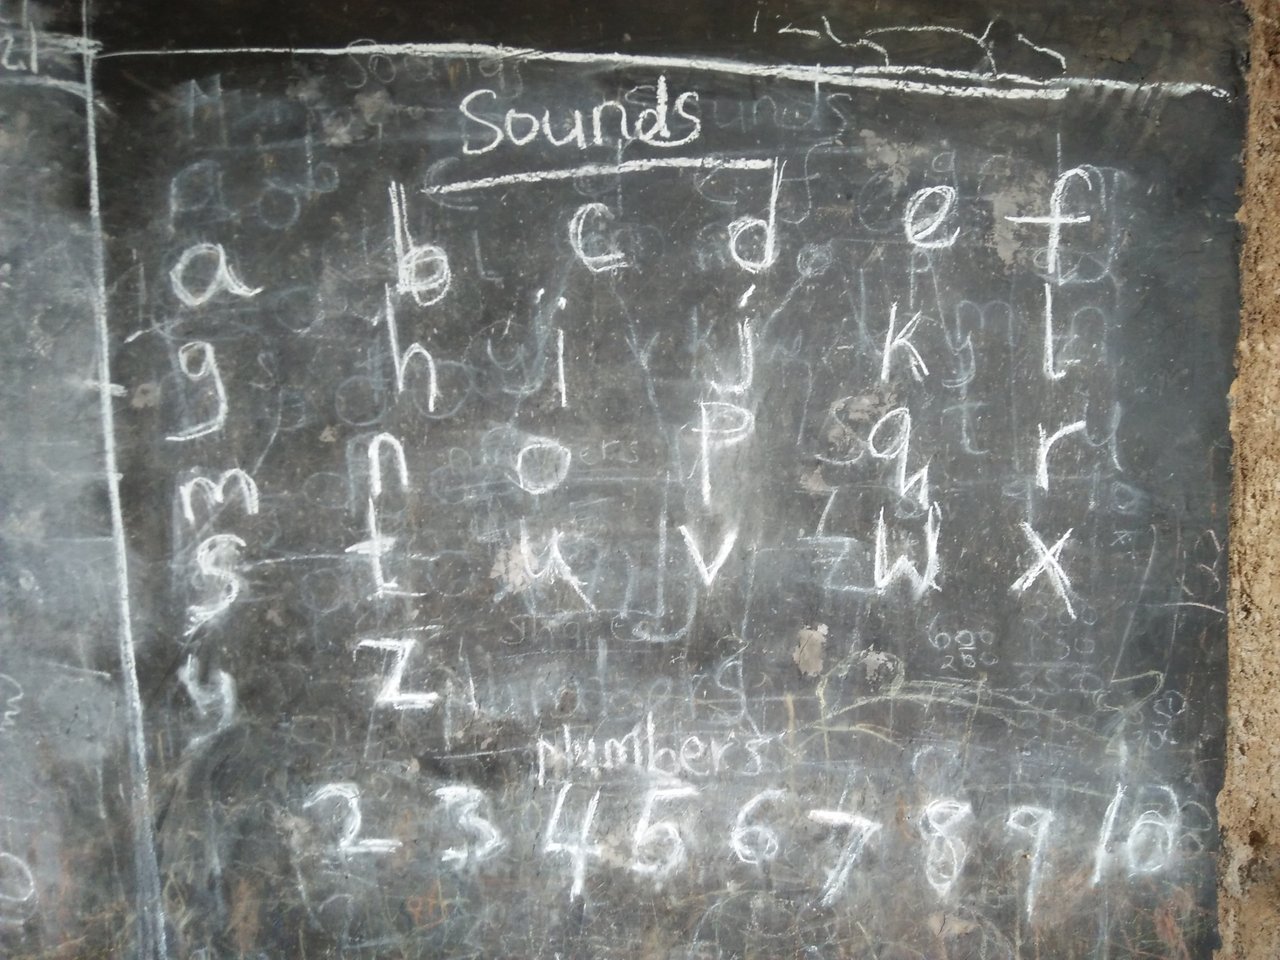 Sounds
a b c d e f
g h i j k l
m n o p q r
s t u v w x
y z
Numbers
2 3 4 5 6 7 8 9 10